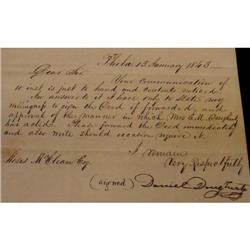 Phila 13 January 1843
Dear Sir
Your communication of
10 inst is just to hand and contents noticed.
In answer to it I have only to state my
willingness to sign the Deed if forwarded, and
approval of the manner in which Mrs E. M.
has acted. Please forward the Deed immediately
and also write should occasion require it.
I remain
Very Respectfully
Moses McClean Esq
(signed) Daniel Dougherty